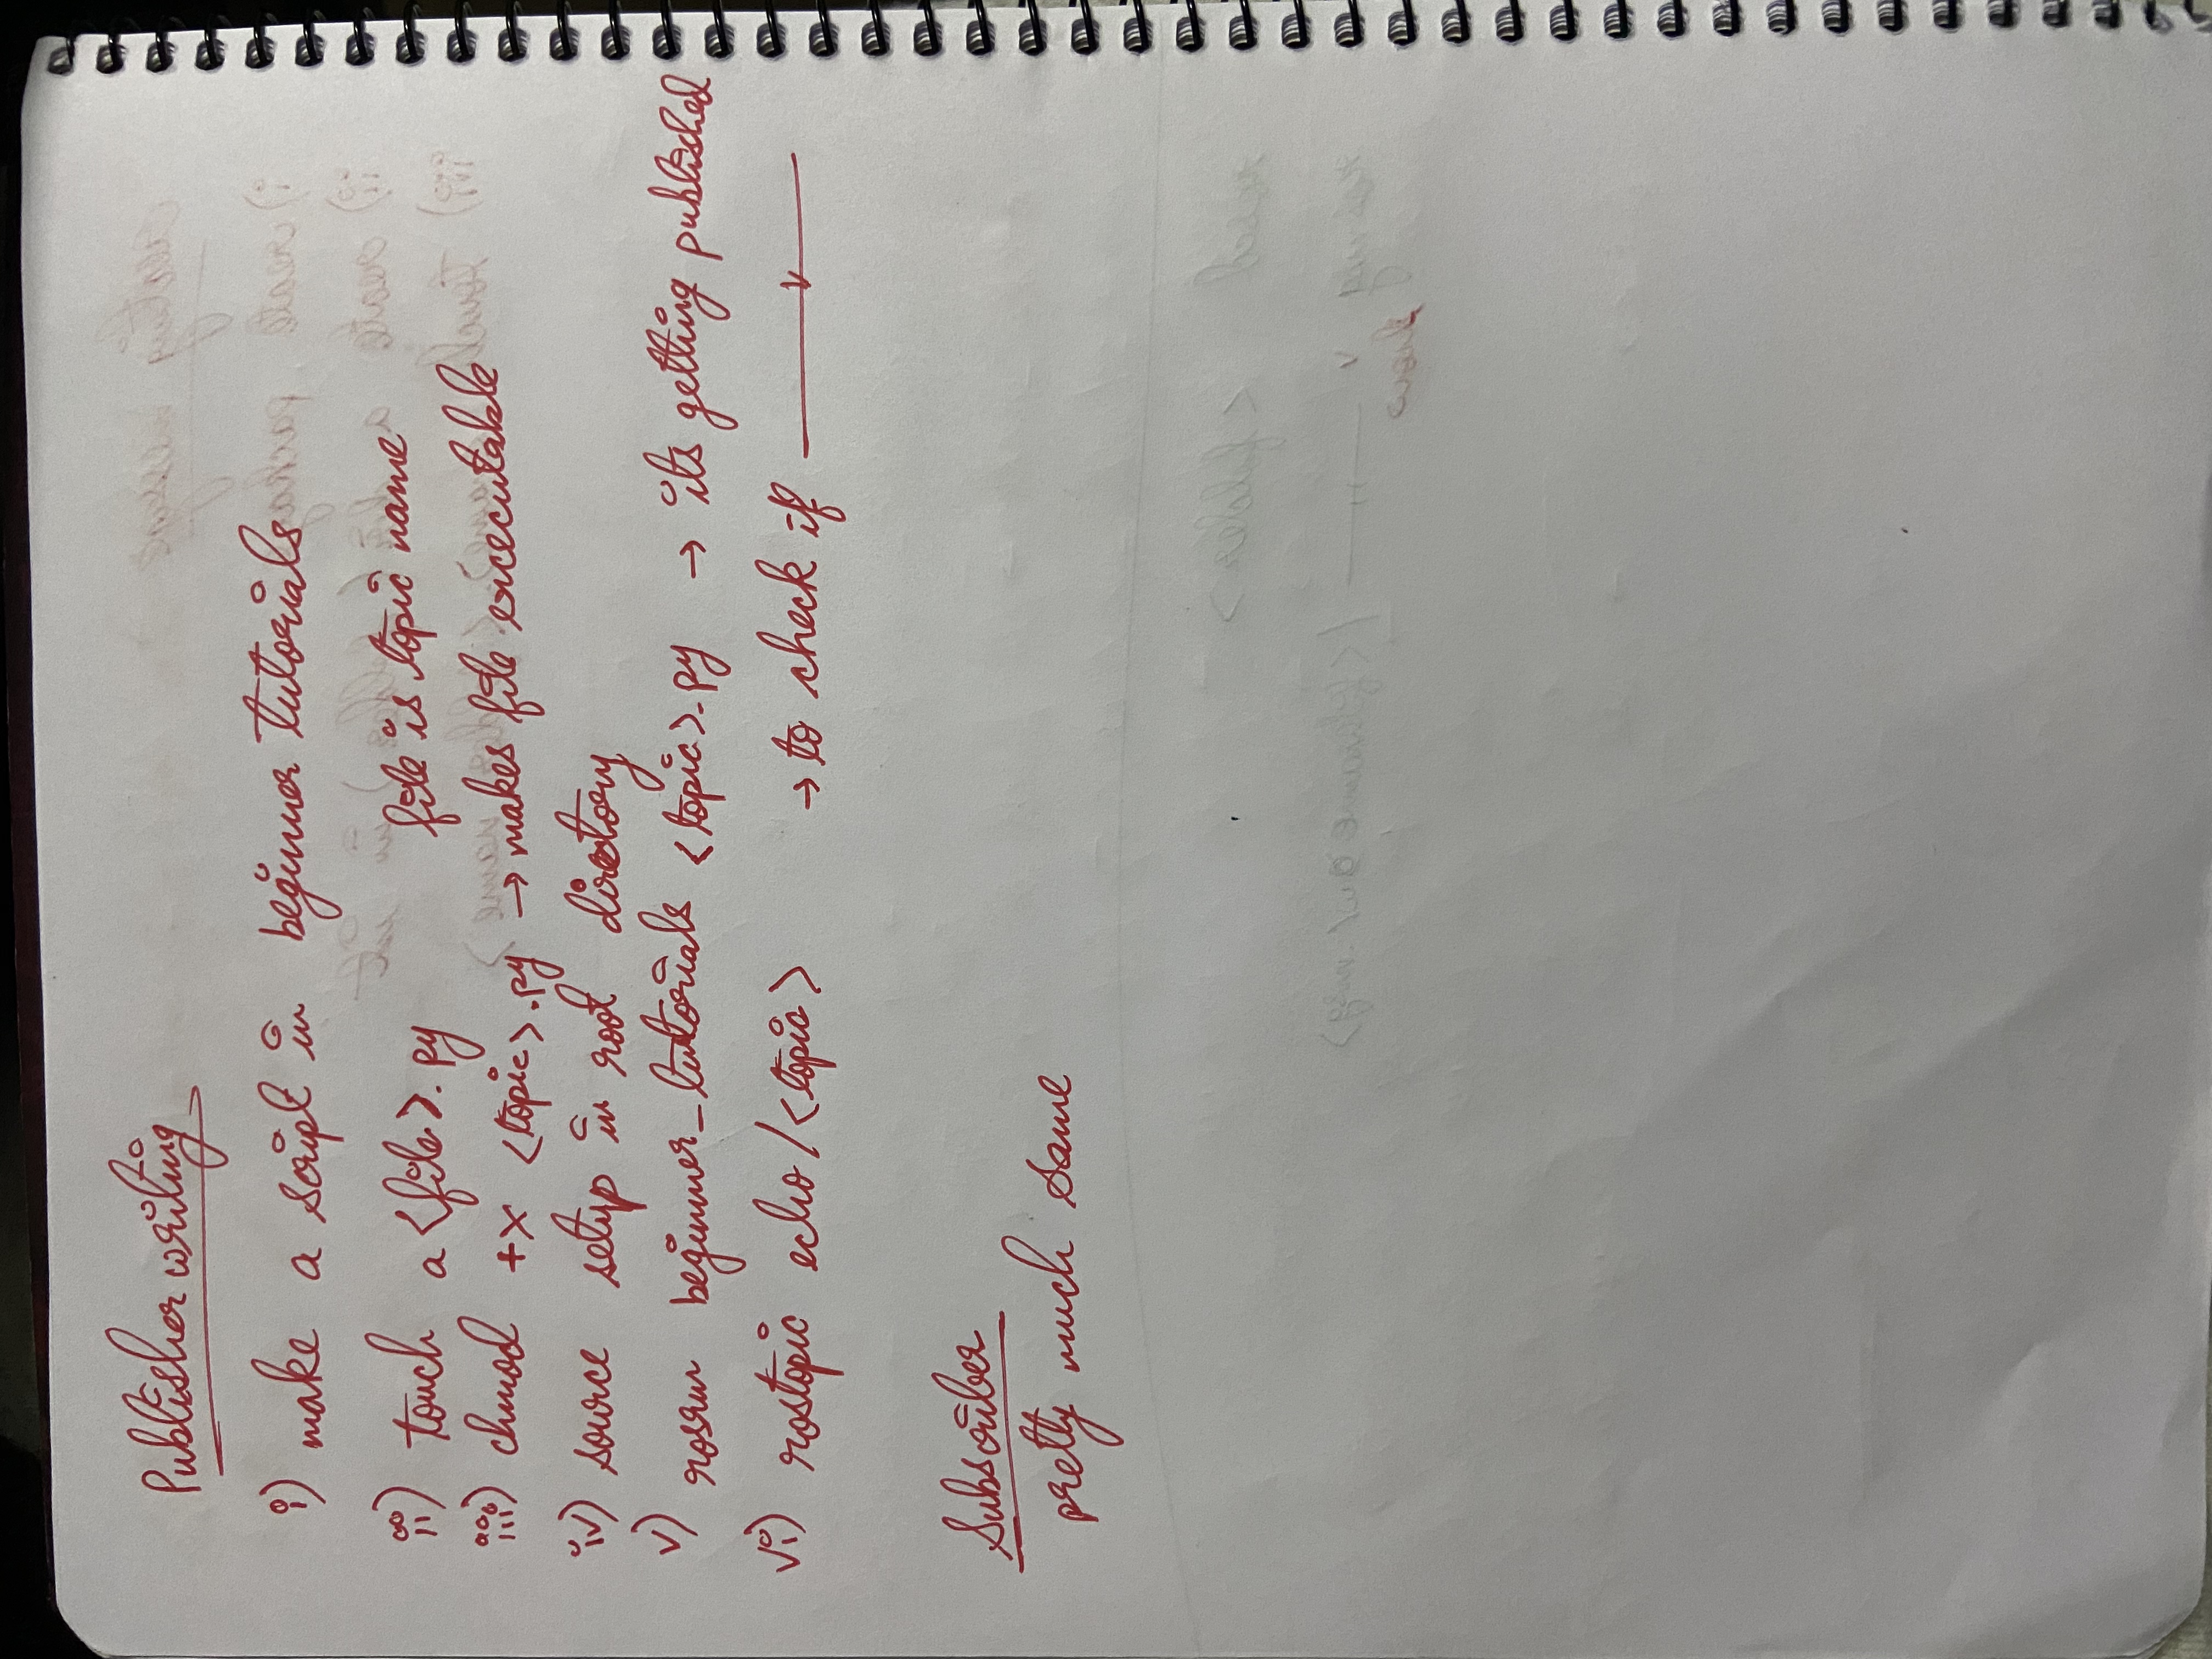 Publisher writing
i) make a script in beginner tutorials
ii) touch a <file>.py file is topic name
iii) chmod +x <topic>.py → makes file excecutable
iv) source setup in root directory
v) rosrun beginner_tutorials <topic>.py → its getting published
vi) rostopic echo /<topic> → to check if —— 〃 ——
Subscriber
pretty much same